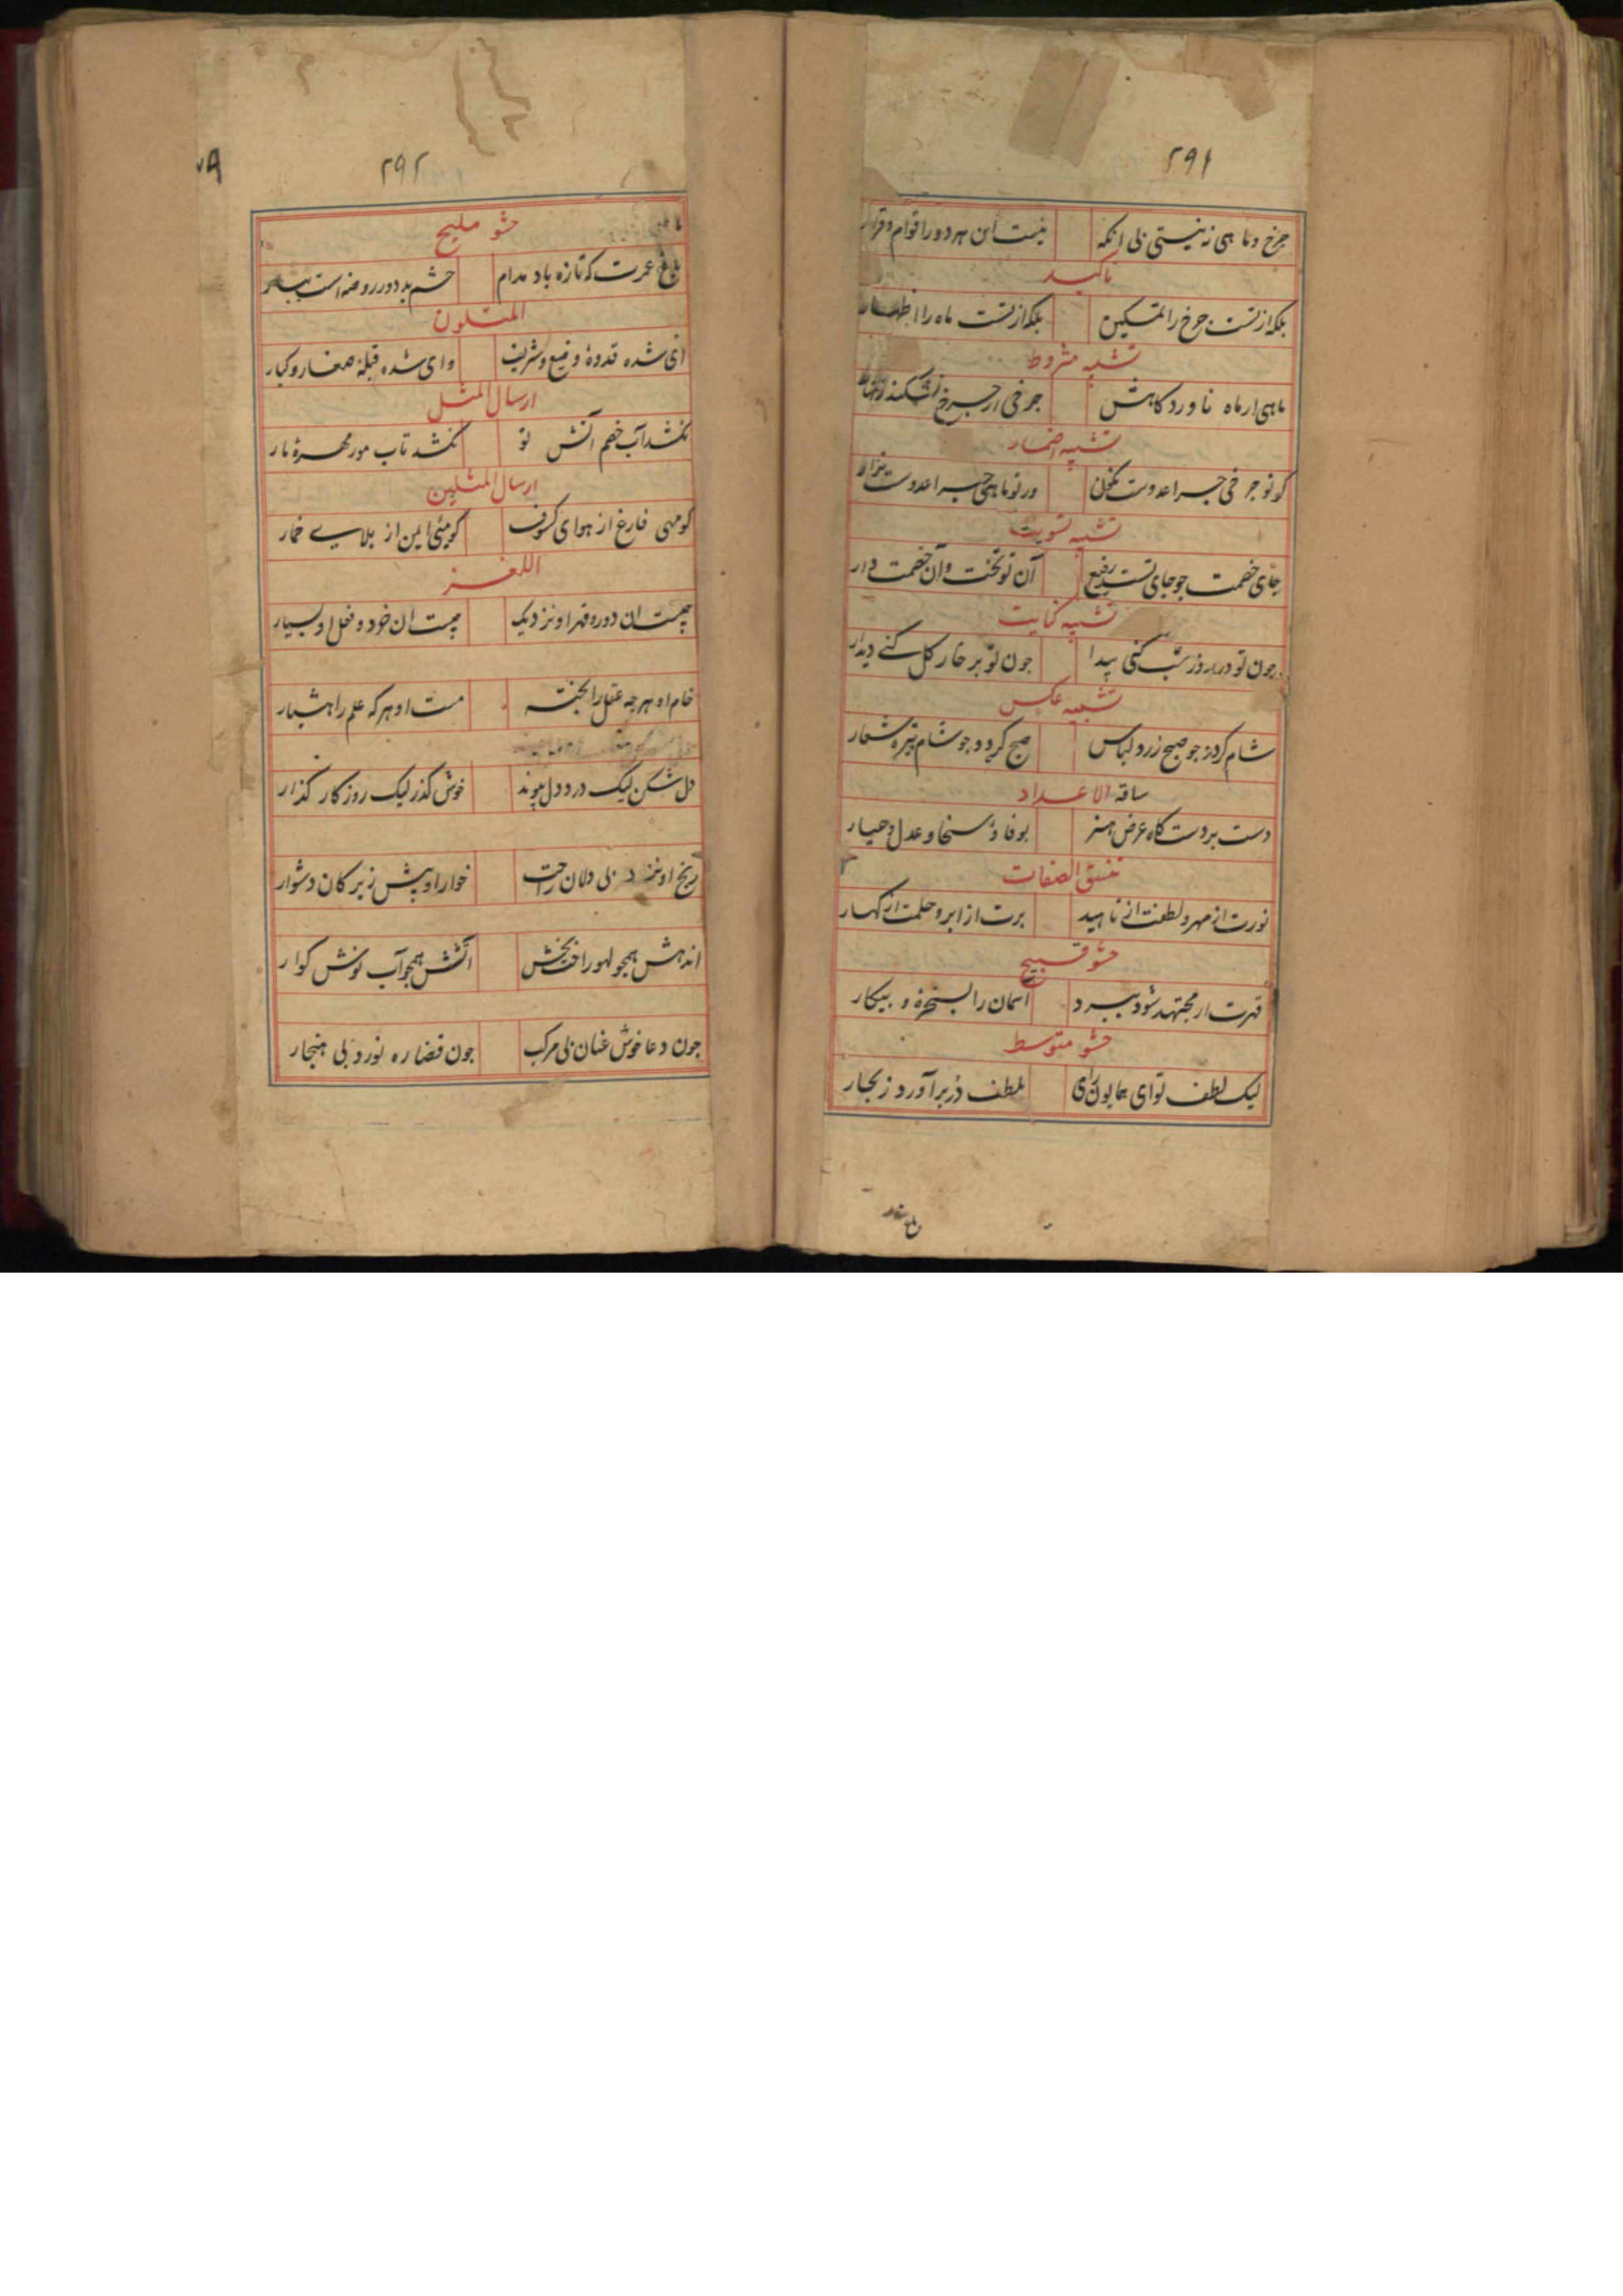 ۲۹۱
چرخ و ماهی نه نیستی بی انکه نیست این هر دو را قوام و قرار
تاکید
بلکه از تست چرخ را تسکین بلکه از تست ماه را
تشبیه مشروط
ماهی ار ماه ناورد کاهش چرخی ار چرخ
تشبیه اضمار
کر تو چرخی چرا عدوست نکون ور تو ماهی چرا عدوست نزار
تشبیه تسویت
جای خصمت جو جای تست رفیع آن تو تخت و آن خصمت دار
تشبیه کنایت
جون تو در روز شب کنی پیدا جون تو بر خار کل کنے دیدار
تشبیه عکس
شام کردد جو صبح زرد لباس صبح کردد جو شام تیره شعار
ساقه الاعداد
دست بردت کاه عرض هنر بوفا و سخا و عدل و
تنسق الصفات
نورت از مهر و لطفت از ناهید برت از ابر و حلمت از کهسار
حشو قبیح
قهرت ار مجتهد شود ببرد اسمان را بسخره و بیکار
حشو متوسط
لیک لطف تو ای همایون رای بلطف دُر برآورد ز بحار
باغ عمرت
۲۹۲
حشو ملیح
باغ عمرت که تازه باد مدام چشم بد دور روضه است ببار
المتلون
ای شده قدوهٔ وضیع و شریف وای شده قبلهٔ صغار و کبار
ارسال المثل
نکشد آب خصم اتش تو نکشد تاب مور مهرهٔ مار
ارسال المثلین
کو مهی فارغ از هوای کسوف کو میئی ایمن از بلاے خمار
اللغز
چیست ان دور و قهر او نزدیک چیست ان خرد و فعل او بسیار
خام او هر چه عقل را پخته مست او هر که علم را هشیار
دل شکن لیک درد دل پیوند خوش کذر لیک روز کار کذار
رنج او نزد بی دلان راحت خوار او پیش زیرکان دشوار
اندهش همجو لهو راحت بخش آتشش همجو آب نوش کوار
جون دعا خوش عنان بی مرکب جون قضا ره نورد بی هنجار